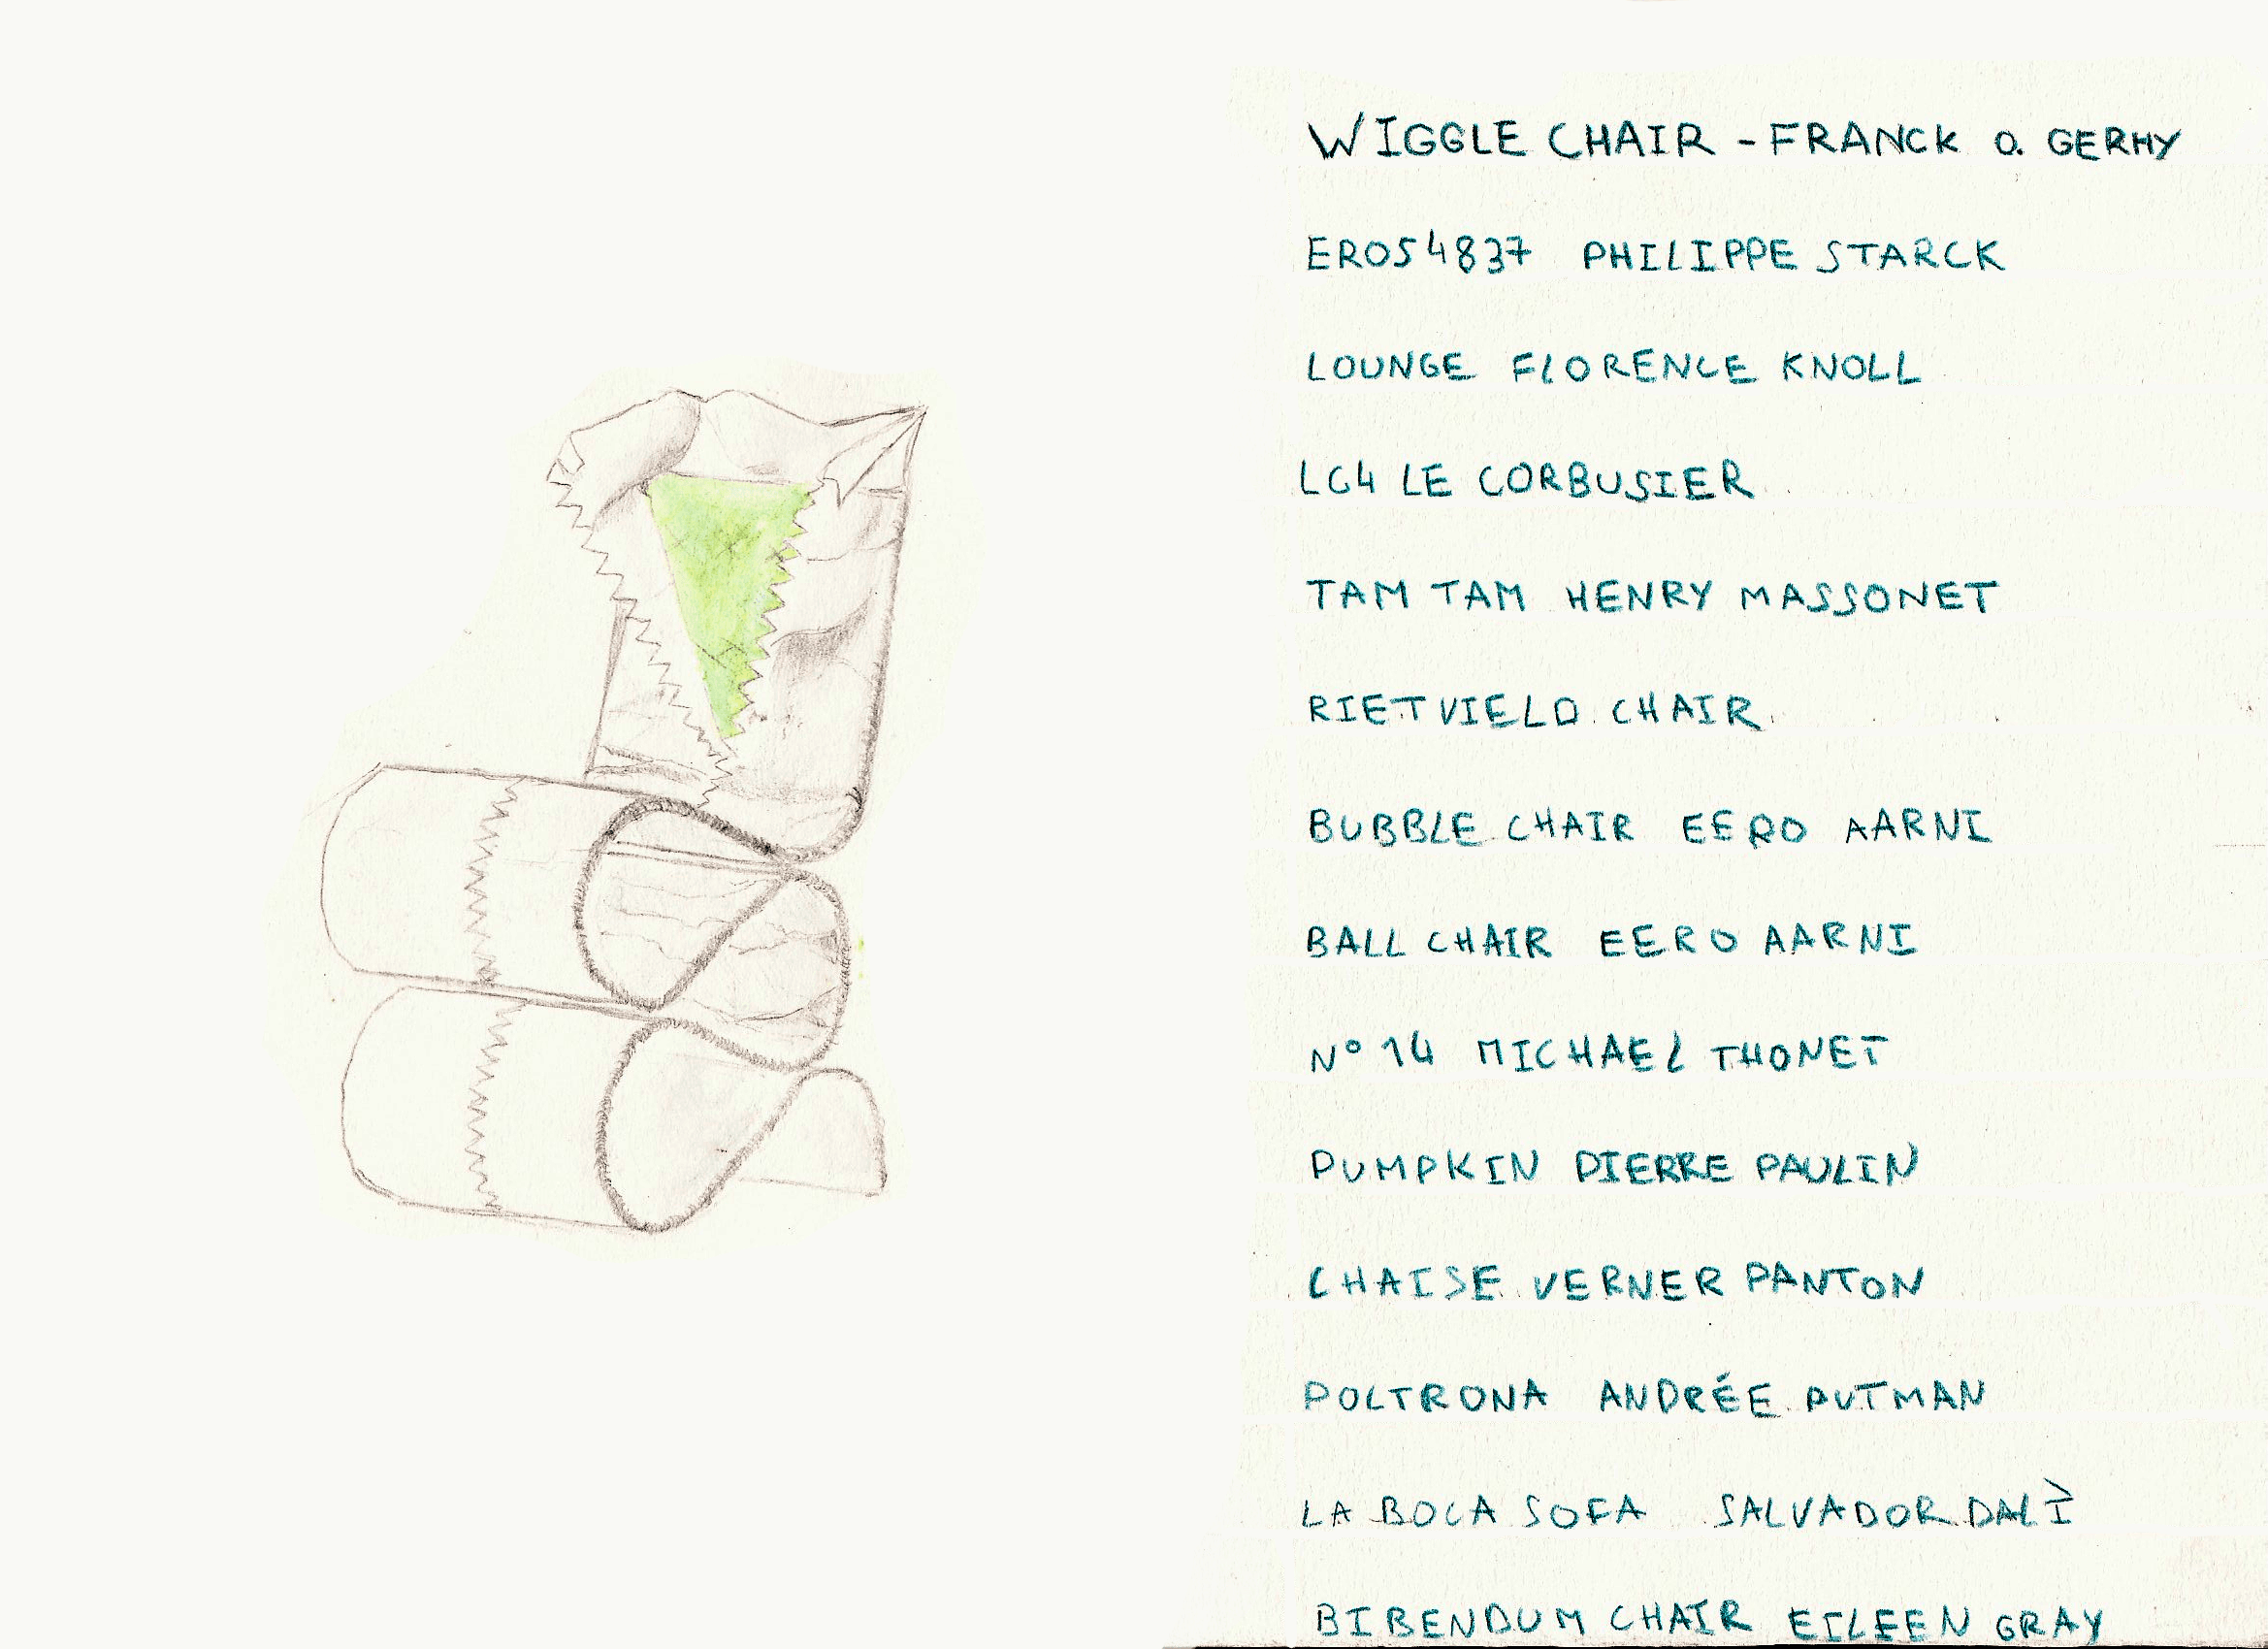 WIGGLE CHAIR - FRANCK O. GERHY
ERO54837 PHILIPPE STARCK
LOUNGE FLORENCE KNOLL
LC4 LE CORBUSIER
TAM TAM HENRY MASSONET
RIETVIELD CHAIR
BUBBLE CHAIR EERO AARNI
BALL CHAIR EERO AARNI
N° 14 MICHAEL THONET
PUMPKIN PIERRE PAULIN
CHAISE VERNER PANTON
POLTRONA ANDRÉE PUTMAN
LA BOCA SOFA SALVADOR DALÌ
BIBENDUM CHAIR EILEEN GRAY